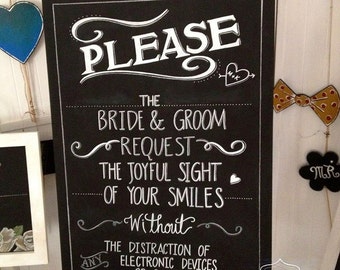 PLEASE
THE
BRIDE & GROOM
REQUEST
THE JOYFUL SIGHT
OF YOUR SMILES
Without
THE DISTRACTION OF
ANY ELECTRONIC DEVICES